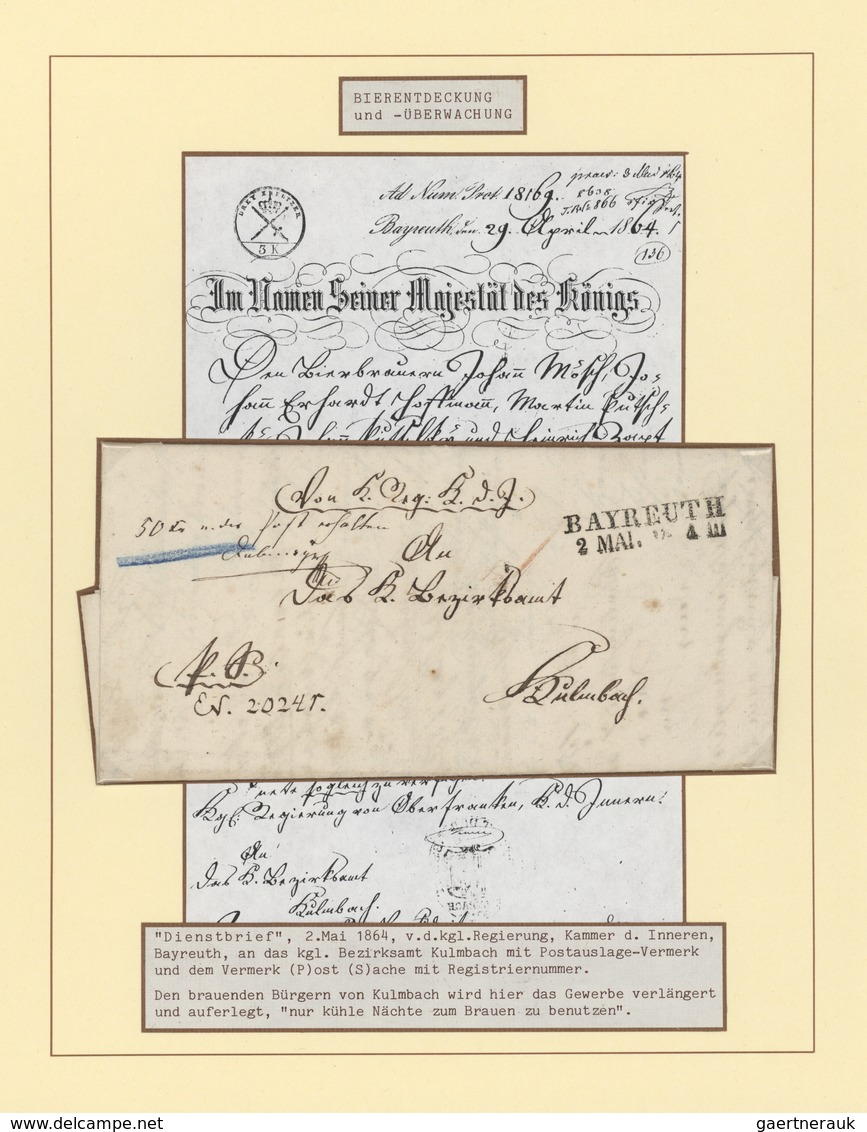 BIERENTDECKUNG
und -ÜBERWACHUNG
DREI KREUTZER
3 K
Ad Num. Prot. 18169.
praes: 3 Mai 1864
Bayreuth, den 29. April 1864.
136
Im Namen Seiner Majestät des Königs
Den Bierbrauern Johañ Mösch, Jo-
hañ Erhardt Hoffmañ, Martin Putsch-
und Heinrich
Von K. Reg: K. d. J.
50 Kr. in der Post erhalten
BAYREUTH
2 MAI.
An
das K. Bezirksamt
P. S.
EN. 20241.
Kulmbach.
sogleich zu
Kgl. Regierung von Oberfranken, K. d. Innern.
An
das K. Bezirksamt
Kulmbach.
"Dienstbrief", 2.Mai 1864, v.d.kgl.Regierung, Kammer d. Inneren,
Bayreuth, an das kgl. Bezirksamt Kulmbach mit Postauslage-Vermerk
und dem Vermerk (P)ost (S)ache mit Registriernummer.
Den brauenden Bürgern von Kulmbach wird hier das Gewerbe verlängert
und auferlegt, "nur kühle Nächte zum Brauen zu benutzen".
gaertnerauk